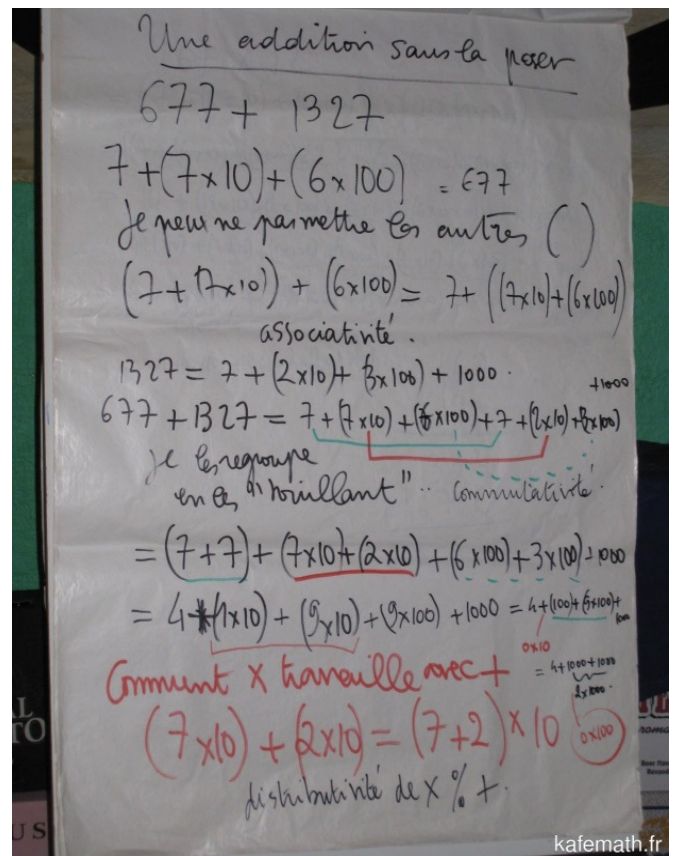 Une addition sans la poser
677 + 1327
7 + (7x10) + (6x100) = 677
Je peux ne pas mettre les autres ( )
(7 + (7x10)) + (6x100) = 7 + ((7x10) + (6x100))
associativité.
1327 = 7 + (2x10) + (3x100) + 1000.
677 + 1327 = 7 + (7x10) + (6x100) + 7 + (2x10) + (3x100) + 1000
Je les regroupe
en les "brouillant".. commutativité.
= (7+7) + (7x10) + (2x10) + (6x100) + 3x100) + 1000
= 4 + (1x10) + (9x10) + (9x100) + 1000 = 4 + (100) + (9x100) + 1000
0x10
= 4 + 1000 + 1000
2x1000.
Comment x travaille avec +
(7x10) + (2x10) = (7+2) x 10
0x100
distributivité de x % +.
kafemath.fr